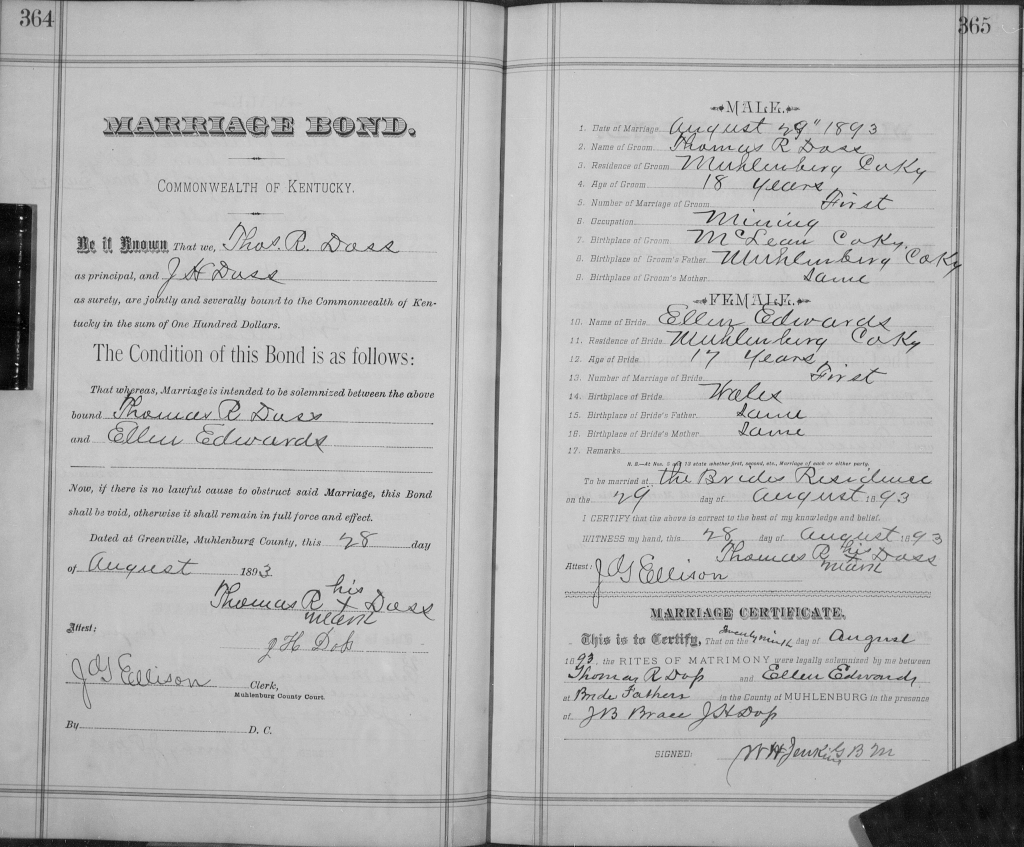 364
MARRIAGE BOND.
COMMONWEALTH OF KENTUCKY.
Be it Known That we, Thos. R. Doss
as principal, and J H Doss
as surety, are jointly and severally bound to the Commonwealth of Ken-
tucky in the sum of One Hundred Dollars.
The Condition of this Bond is as follows:
That whereas, Marriage is intended to be solemnized between the above
bound Thomas R Doss
and Ellen Edwards
Now, if there is no lawful cause to obstruct said Marriage, this Bond
shall be void, otherwise it shall remain in full force and effect.
Dated at Greenville, Muhlenburg County, this 28 day
of August 1893.
Thomas R his x mark Doss
Attest:
J H Doss
J G Ellison Clerk,
Muhlenburg County Court.
By D. C.
365
MALE.
1. Date of Marriage August 29" 1893
2. Name of Groom Thomas R Doss
3. Residence of Groom Muhlenberg Co Ky
4. Age of Groom 18 years
5. Number of Marriage of Groom First
6. Occupation Mining
7. Birthplace of Groom McLean Co Ky.
8. Birthplace of Groom's Father Muhlenberg Co Ky
9. Birthplace of Groom's Mother Same
FEMALE.
10. Name of Bride Ellen Edwards
11. Residence of Bride Muhlenburg Co Ky
12. Age of Bride 17 years
13. Number of Marriage of Bride First
14. Birthplace of Bride Wales
15. Birthplace of Bride's Father Same
16. Birthplace of Bride's Mother Same
17. Remarks
N. B.—At Nos. 5 and 13 state whether first, second, etc., Marriage of each or either party.
To be married at the Brides Residence
on the 29 day of August 1893
I CERTIFY that the above is correct to the best of my knowledge and belief.
WITNESS my hand, this 28 day of August 1893
Thomas R his x mark Doss
Attest: J G Ellison
MARRIAGE CERTIFICATE.
This is to Certify, That on twenty ninth day of August
1893, the RITES OF MATRIMONY were legally solemnized by me between
Thomas R Doss and Ellen Edwards
at Bride Fathers in the County of MUHLENBURG in the presence
of J B Brace J H Doss
SIGNED: W H Jenkins G B M